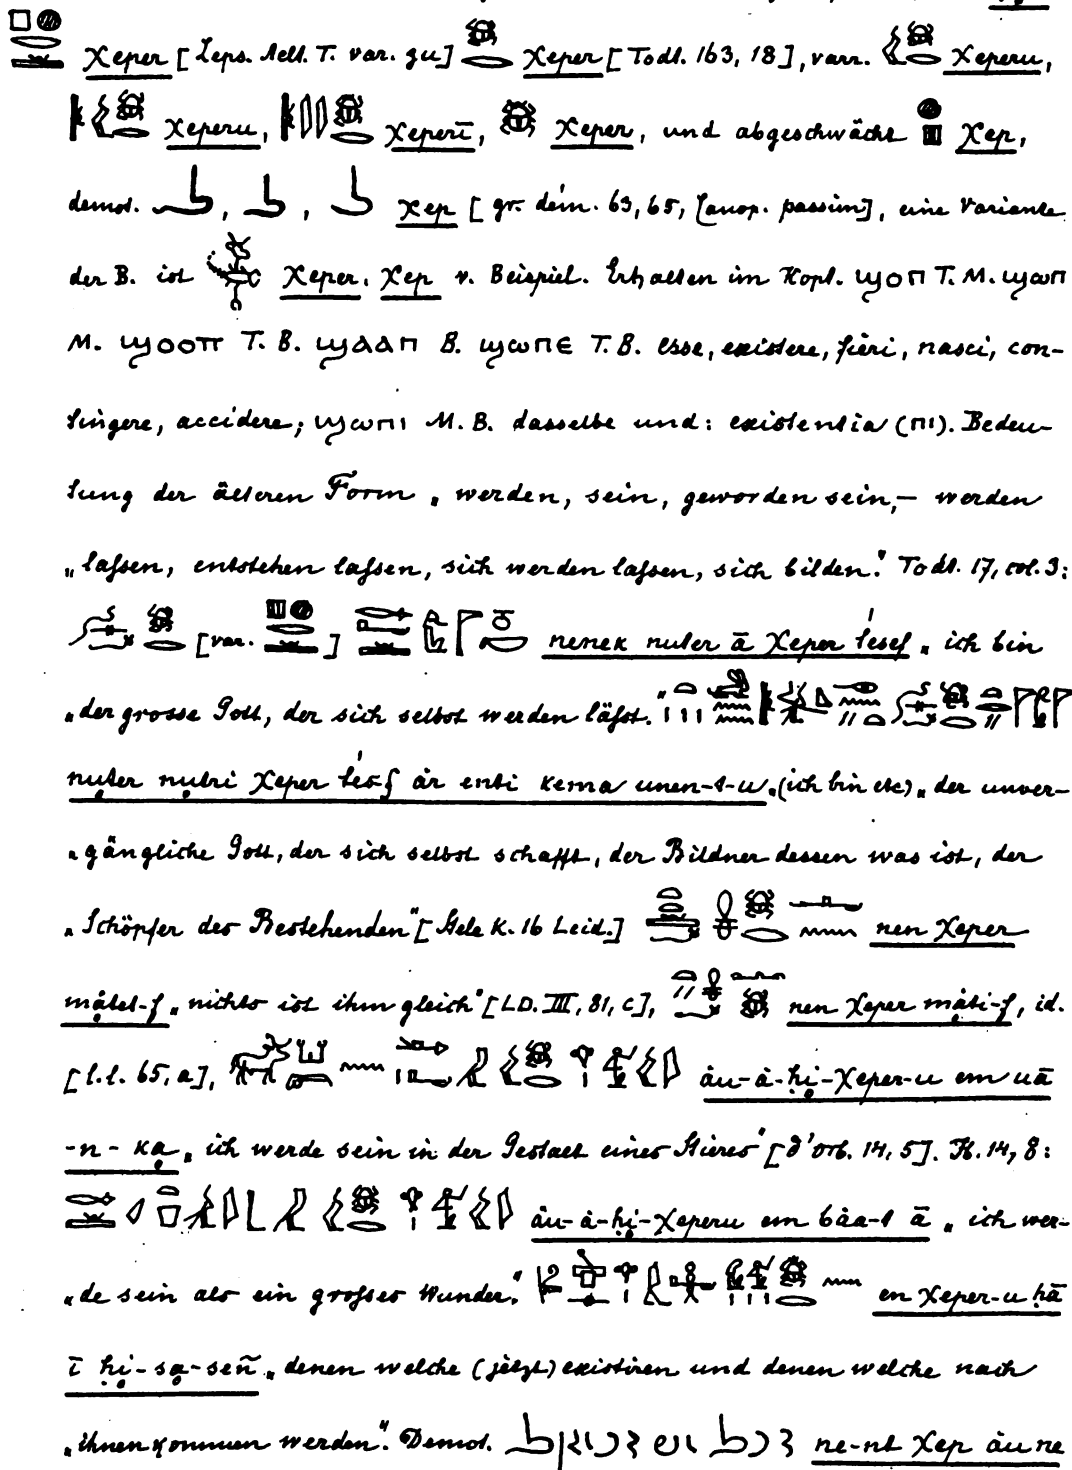 Xeper [Leps. Aell. T. var. zu] Xeper [Todt. 163, 18], varr. Xeperu,
Xeperu, Xeperī, Xeper, und abgeschwächt Xep,
demot. Xep [gr. dém. 63, 65, Canop. passim], eine Variante
der B. ist Xeper. Xep v. Beispiel. Erhalten im Kopt. ϣⲟⲡ T. M. ϣⲱⲡ
M. ϣⲟⲟⲡ T. B. ϣⲁⲁⲡ B. ϣⲱⲡⲉ T. B. esse, existere, fieri, nasci, con-
tingere, accidere; ϣⲱⲡⲓ M. B. dasselbe und: existentia (ⲡⲓ). Bedeu-
tung der älteren Form „werden, sein, geworden sein, – werden
„lassen, entstehen lassen, sich werden lassen, sich bilden." Todt. 17, col. 3:
[var. ] nenek nuter ā Xeper t́esef „ich bin
„der grosse Gott, der sich selbst werden läßt."
nuter nutri Xeper t́es-f ȧr enti kema unen-t-u. (ich bin etc) „der unver-
„gängliche Gott, der sich selbst schafft, der Bildner dessen was ist, der
„Schöpfer des Bestehenden" [Stele K. 16 Leid.] nen Xeper
mȧtet-f „nichts ist ihm gleich" [LD. III, 81, c], nen Xeper mȧti-f, id.
[l.l. 65, a], ȧu-ȧ-ḥi-Xeper-u em uā
-n-ka „ich werde sein in der Gestalt eines Stieres" [d'Orb. 14, 5]. K. 14, 8:
ȧu-ȧ-ḥi-Xeperu em bȧa-t ā „ich wer-
„de sein als ein grosses Wunder." en Xeper-u ḥā
ī ḥi-sa-sen „denen welche (jetzt) existiren und denen welche nach
„ihnen kommen werden". Demot. ne-nt Xep ȧu ne